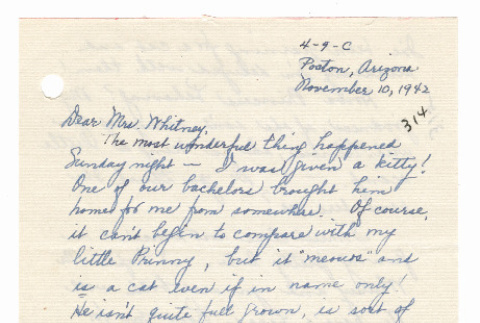 4-9-C
Poston, Arizona
November 10, 1942
314
Dear Mrs. Whitney,
The most wonderful thing happened
Sunday night — I was given a kitty!
One of our bachelors brought him
home for me from somewhere. Of course,
it can't begin to compare with my
little Prinny, but it "meows" and
is a cat even if in name only!
He isn't quite full grown, is sort of